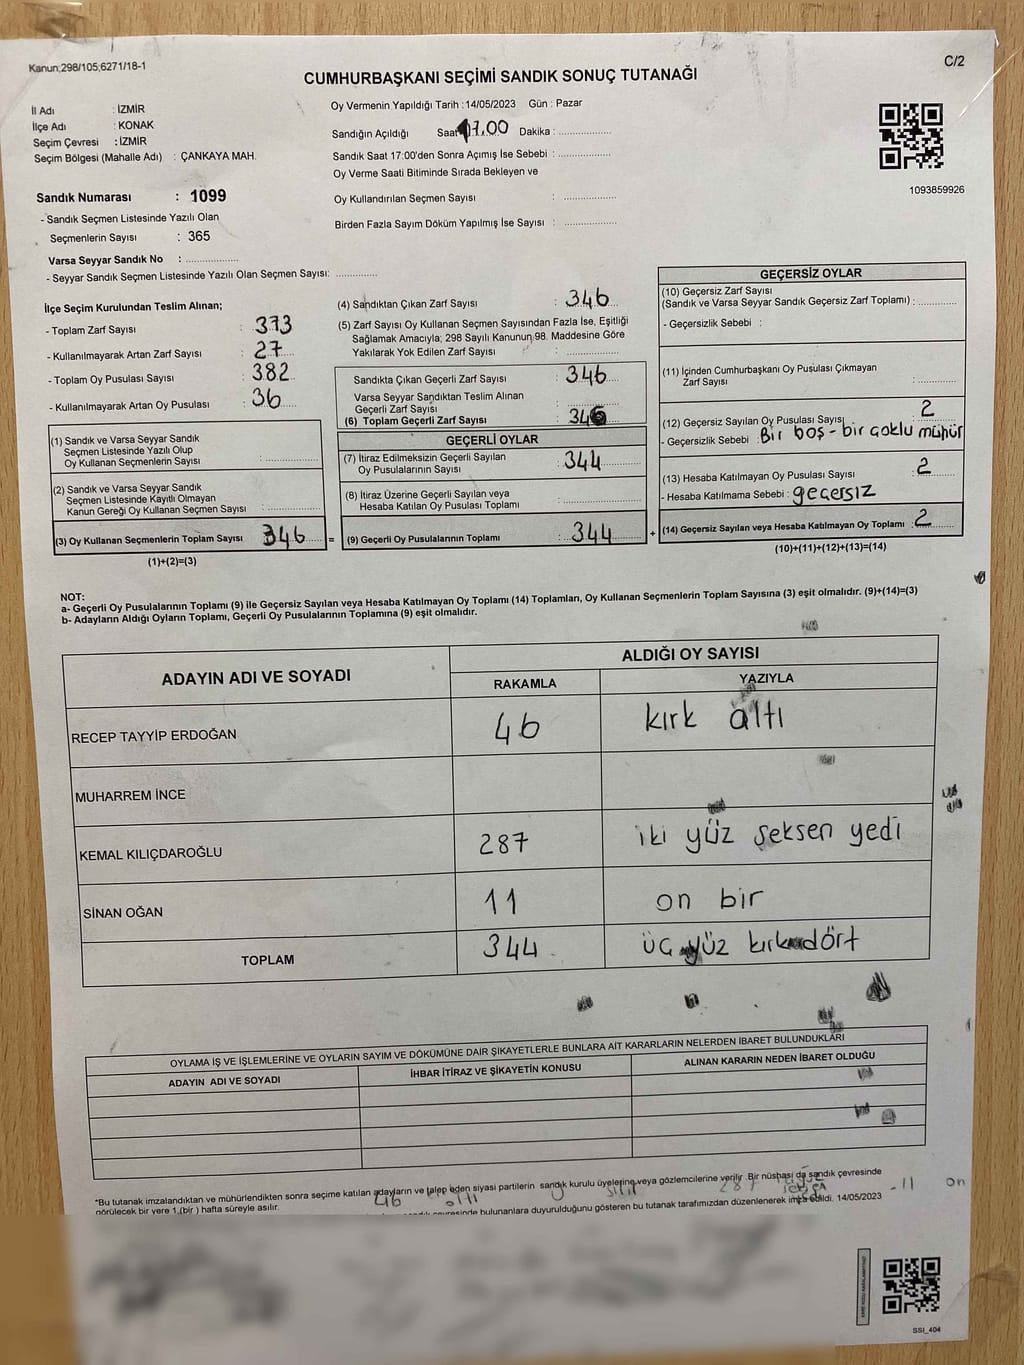 Kanun;298/105;6271/18-1
C/2
CUMHURBAŞKANI SEÇİMİ SANDIK SONUÇ TUTANAĞI
İl Adı : İZMİR
İlçe Adı : KONAK
Seçim Çevresi : İZMİR
Seçim Bölgesi (Mahalle Adı) : ÇANKAYA MAH.
Oy Vermenin Yapıldığı Tarih : 14/05/2023 Gün : Pazar
Sandığın Açıldığı Saat 17.00 Dakika : ....................
Sandık Saat 17:00'den Sonra Açımış İse Sebebi : ....................
Oy Verme Saati Bitiminde Sırada Bekleyen ve
Oy Kullandırılan Seçmen Sayısı : ....................
Birden Fazla Sayım Döküm Yapılmış İse Sayısı : ....................
1093859926
Sandık Numarası : 1099
- Sandık Seçmen Listesinde Yazılı Olan
Seçmenlerin Sayısı : 365
Varsa Seyyar Sandık No : ....................
- Seyyar Sandık Seçmen Listesinde Yazılı Olan Seçmen Sayısı: ................
İlçe Seçim Kurulundan Teslim Alınan;
- Toplam Zarf Sayısı : 373
- Kullanılmayarak Artan Zarf Sayısı : 27
- Toplam Oy Pusulası Sayısı : 382
- Kullanılmayarak Artan Oy Pusulası : 36
(1) Sandık ve Varsa Seyyar Sandık
Seçmen Listesinde Yazılı Olup
Oy Kullanan Seçmenlerin Sayısı : ................
(2) Sandık ve Varsa Seyyar Sandık
Seçmen Listesinde Kayıtlı Olmayan
Kanun Gereği Oy Kullanan Seçmen Sayısı : ................
(3) Oy Kullanan Seçmenlerin Toplam Sayısı 346 =
(1)+(2)=(3)
(4) Sandıktan Çıkan Zarf Sayısı : 346
(5) Zarf Sayısı Oy Kullanan Seçmen Sayısından Fazla İse, Eşitliği
Sağlamak Amacıyla; 298 Sayılı Kanunun 98. Maddesine Göre
Yakılarak Yok Edilen Zarf Sayısı : ................
Sandıkta Çıkan Geçerli Zarf Sayısı : 346
Varsa Seyyar Sandıktan Teslim Alınan
Geçerli Zarf Sayısı : ................
(6) Toplam Geçerli Zarf Sayısı : 346
GEÇERLİ OYLAR
(7) İtiraz Edilmeksizin Geçerli Sayılan
Oy Pusulalarının Sayısı : 344
(8) İtiraz Üzerine Geçerli Sayılan veya
Hesaba Katılan Oy Pusulası Toplamı : ................
(9) Geçerli Oy Pusulalarının Toplamı : 344 +
GEÇERSİZ OYLAR
(10) Geçersiz Zarf Sayısı
(Sandık ve Varsa Seyyar Sandık Geçersiz Zarf Toplamı) : ............
- Geçersizlik Sebebi :
(11) İçinden Cumhurbaşkanı Oy Pusulası Çıkmayan
Zarf Sayısı : ............
(12) Geçersiz Sayılan Oy Pusulası Sayısı 2
- Geçersizlik Sebebi : Bir boş - bir çoklu mühür
(13) Hesaba Katılmayan Oy Pusulası Sayısı : 2
- Hesaba Katılmama Sebebi : geçersiz
(14) Geçersiz Sayılan veya Hesaba Katılmayan Oy Toplamı : 2
(10)+(11)+(12)+(13)=(14)
NOT:
a- Geçerli Oy Pusulalarının Toplamı (9) ile Geçersiz Sayılan veya Hesaba Katılmayan Oy Toplamı (14) Toplamları, Oy Kullanan Seçmenlerin Toplam Sayısına (3) eşit olmalıdır. (9)+(14)=(3)
b- Adayların Aldığı Oyların Toplamı, Geçerli Oy Pusulalarının Toplamına (9) eşit olmalıdır.
ADAYIN ADI VE SOYADI
ALDIĞI OY SAYISI
RAKAMLA YAZIYLA
RECEP TAYYİP ERDOĞAN 46 kırk altı
MUHARREM İNCE
KEMAL KILIÇDAROĞLU 287 iki yüz seksen yedi
SİNAN OĞAN 11 on bir
TOPLAM 344 üç yüz kırk dört
OYLAMA İŞ VE İŞLEMLERİNE VE OYLARIN SAYIM VE DÖKÜMÜNE DAİR ŞİKAYETLERLE BUNLARA AİT KARARLARIN NELERDEN İBARET BULUNDUKLARI
ADAYIN ADI VE SOYADI
İHBAR İTİRAZ VE ŞİKAYETİN KONUSU
ALINAN KARARIN NEDEN İBARET OLDUĞU
*Bu tutanak imzalandıktan ve mühürlendikten sonra seçime katılan adayların ve talep eden siyasi partilerin sandık kurulu üyelerine veya gözlemcilerine verilir. Bir nüshası da sandık çevresinde
görülecek bir yere 1 (bir) hafta süreyle asılır.
46 altı 287 11 on
bulunanlara duyurulduğunu gösteren bu tutanak tarafımızdan düzenlenerek imza edildi. 14/05/2023
SSI_404